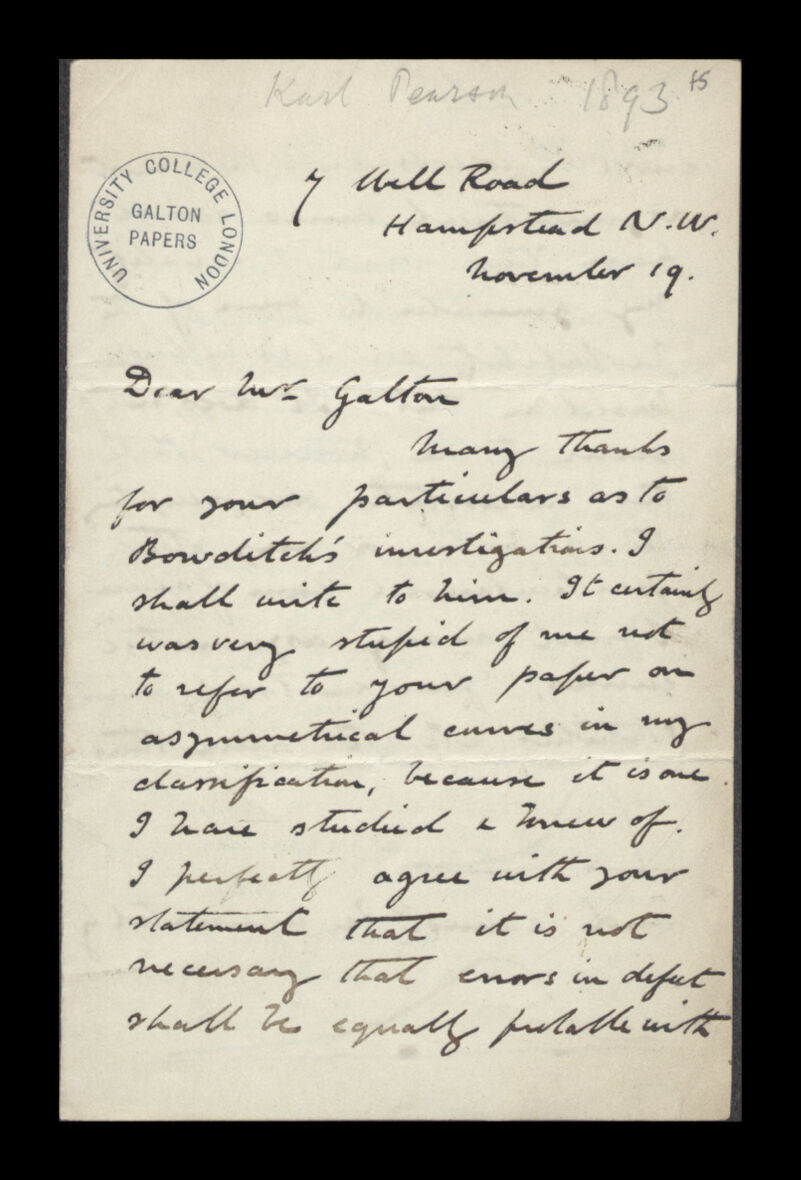 Karl Pearson 1893 45
UNIVERSITY COLLEGE LONDON
GALTON
PAPERS
7 Well Road
Hampstead N.W.
November 19.
Dear Mr Galton
Many thanks
for your particulars as to
Bowditch's investigations. I
shall write to him. It certainly
was very stupid of me not
to refer to your paper on
asymmetrical curves in my
classification, because it is one
I have studied & knew of.
I perfectly agree with your
statement that it is not
necessary that errors in defect
shall be equally probable with